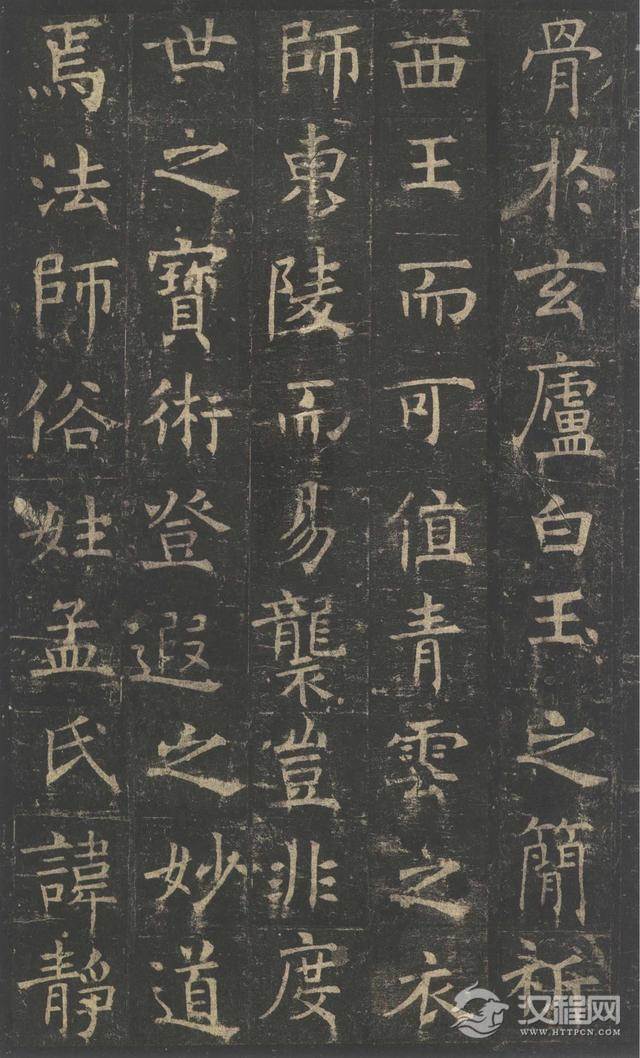 骨於玄廬白玉之簡祈
西王而可值青雲之衣
師東陵而易襲豈非度
世之寶術登遐之妙道
焉法師俗姓孟氏諱靜
汉程网
WWW.HTTPCN.COM